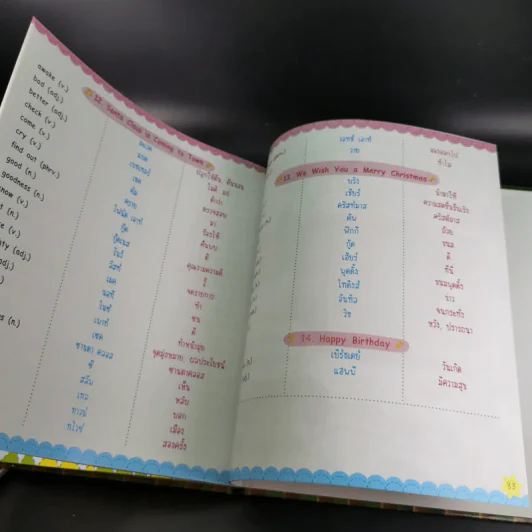 12. Santa Claus is Coming to Town
awake (v.)
bad (adj.)
better (adj.)
check (v.)
come (v.)
cry (v.)
find out (phrv.)
good (n.)
goodness (n.)
know (v.)
t (n.)
(v.)
ty (adj.)
dj.)
j.)
s (n.)
แบด
เบทเทอร์
เชค
คัม
คราย
ไฟนด์ เอาท์
กู้ด
กู้ดเนส
โนว์
ลิสท์
เมค
นอทิ
ไนซ์
เพาท์
เซค
ซานตา คลอส
ซี
สลีป
เทล
ทาวน์
ทไวซ์
ไม่ดี แย่
ดีกว่า
ตรวจสอบ
มา
ร้องไห้
ค้นพบ
ดี
คุณงามความดี
รู้
จดรายการ
ทำ
ซน
ดี
ทำหน้ามุ่ย
จุดมุ่งหมาย, ผลประโยชน์
ซานตาคลอส
เห็น
หลับ
บอก
เมือง
สองครั้ง
วาย
ทำไม
13. We Wish You a Merry Christmas
บริง
นำมาให้
เชียร์
คริสท์มาส
คริสต์มาส
คัพ
ถ้วย
ฟิกกี
กู้ด
ดี
เฮียร์
ที่นี่
พุดดิ้ง
ขนมพุดดิ้ง
ไทดิงส์
ข่าว
อันทิล
จนกระทั่ง
วิช
หวัง, ปรารถนา
14. Happy Birthday
เบิร์ธเดย์
วันเกิด
แฮพพี
มีความสุข
83